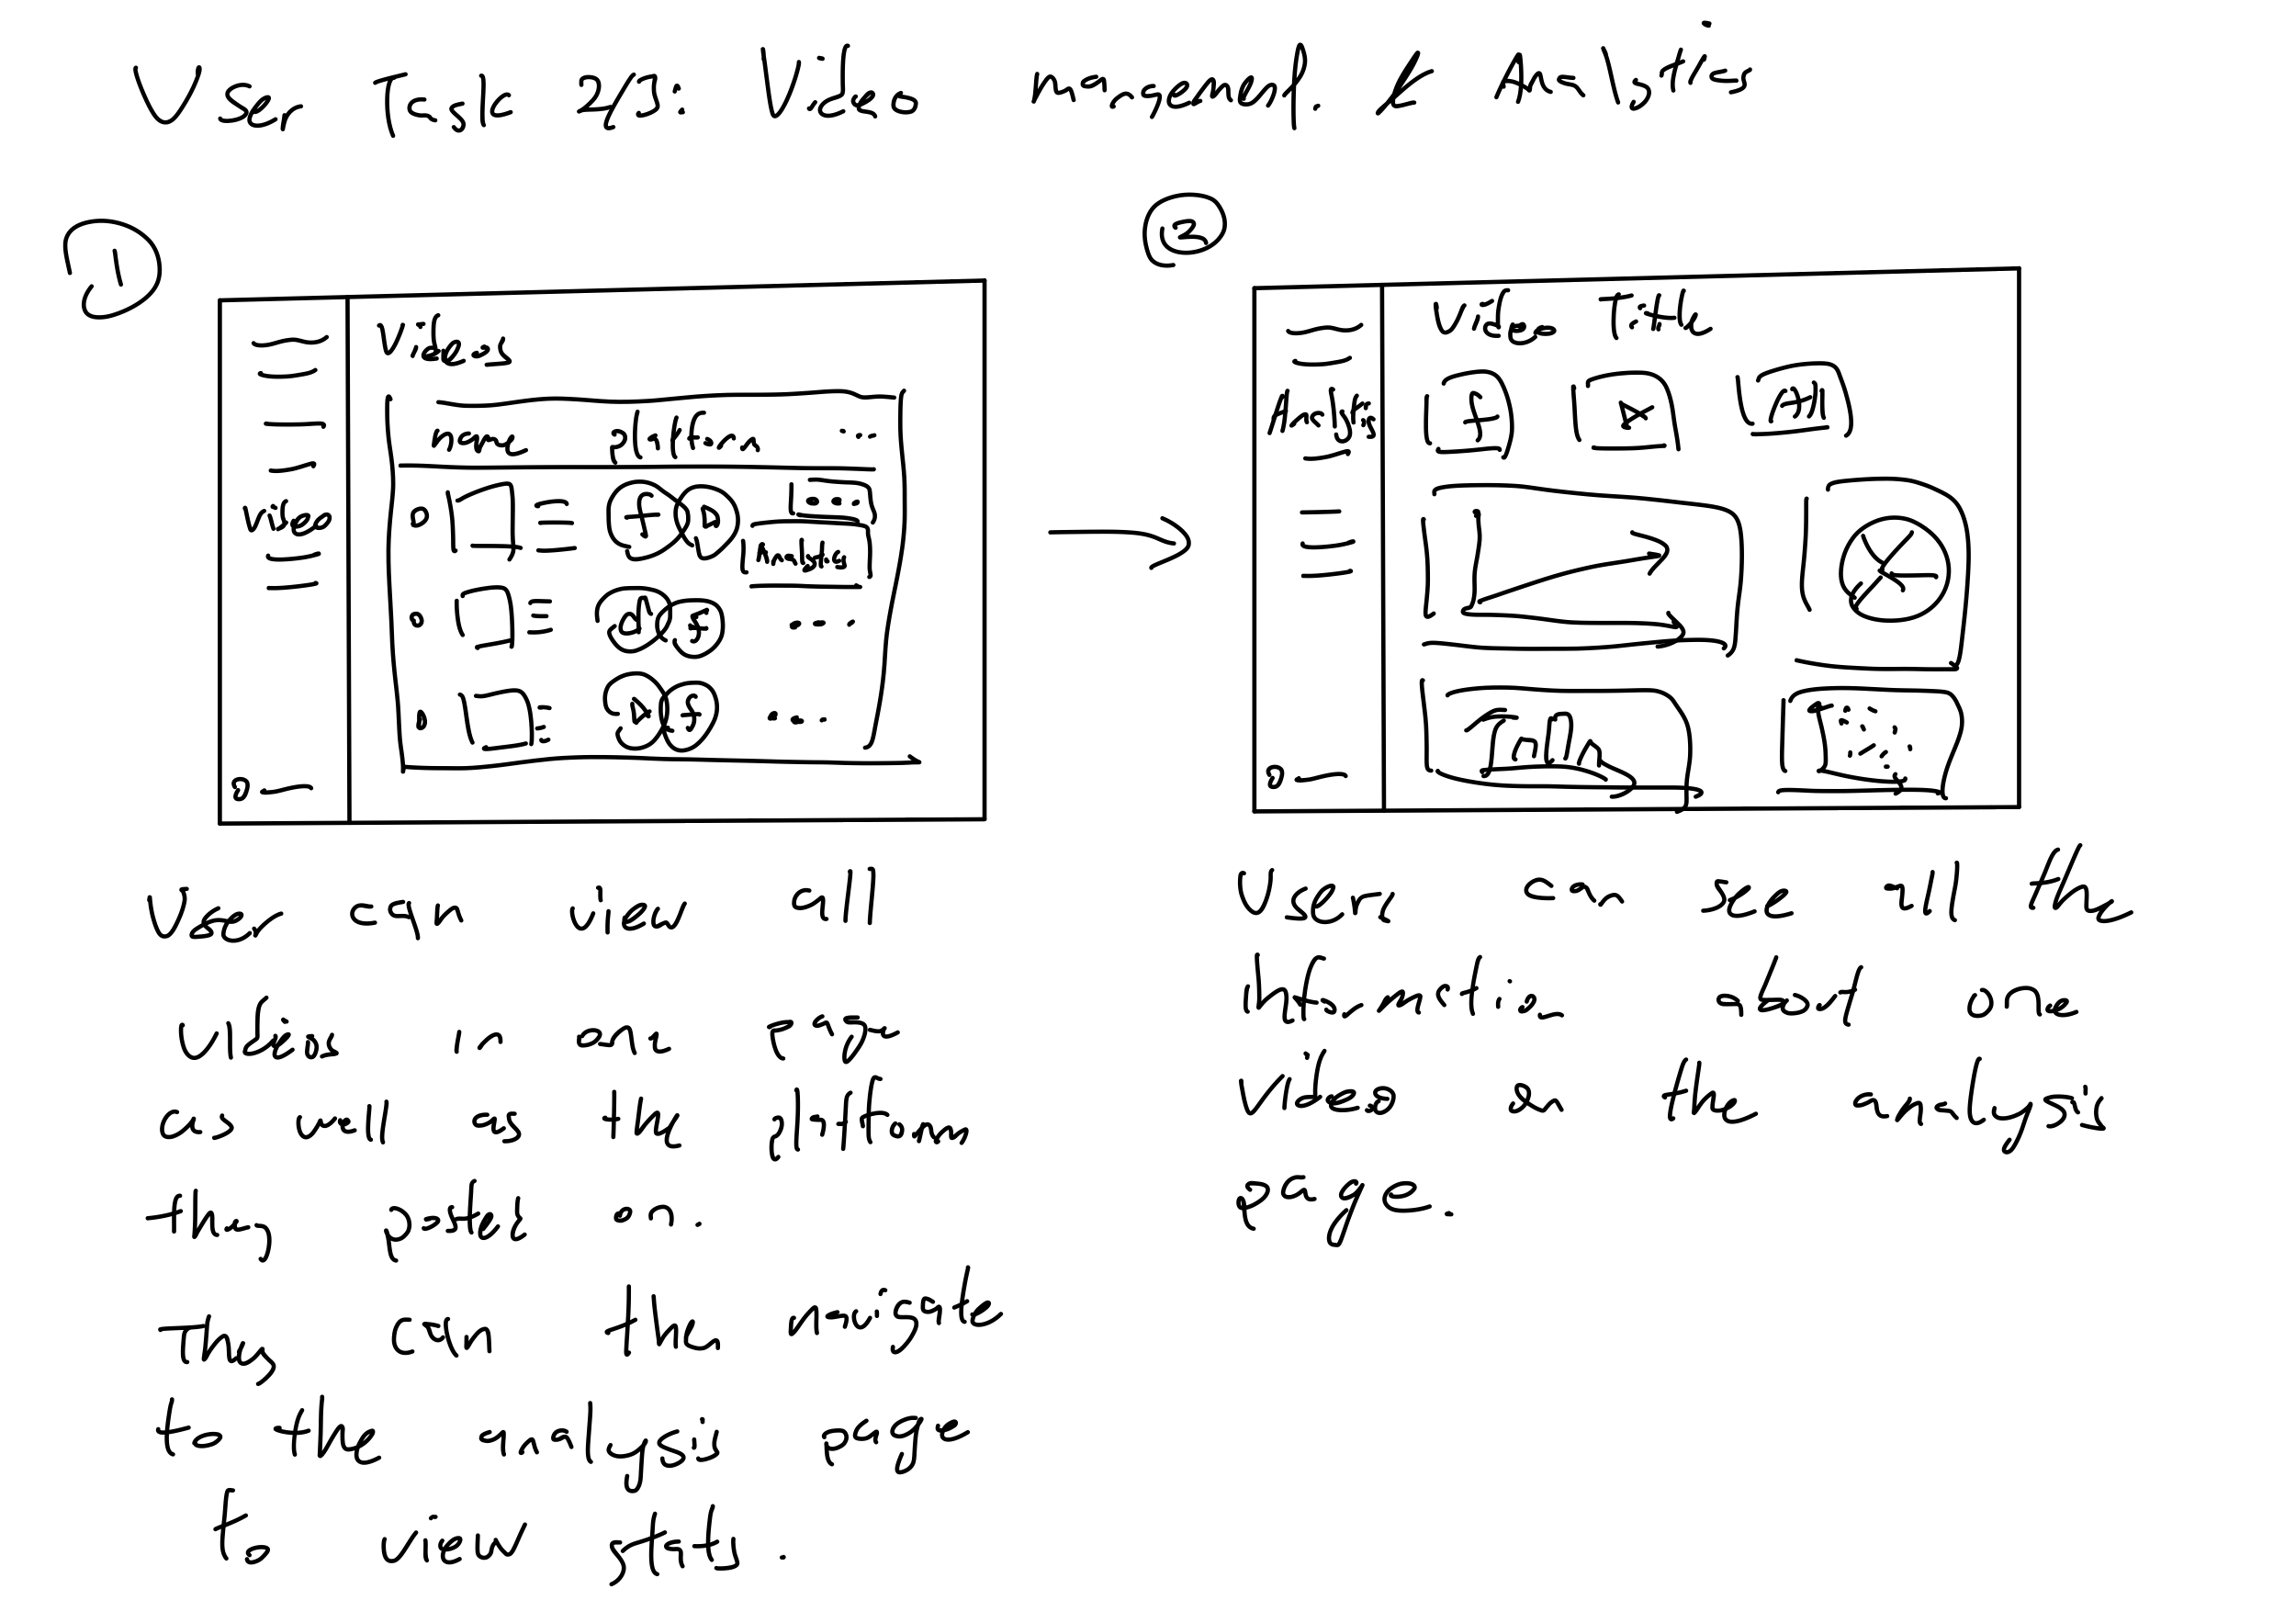 User Task 2/3: Video management. & Analytics
1
2
Videos
Name
platform
...
Videos
...
Analytics
...
...
User can view all
videos in one page
as well as the platform
they posted on.
They can then navigate
to the analysis page
to view stats.
Video Title
Analytics
User can see all the
Information about one
video on the analysis
page.